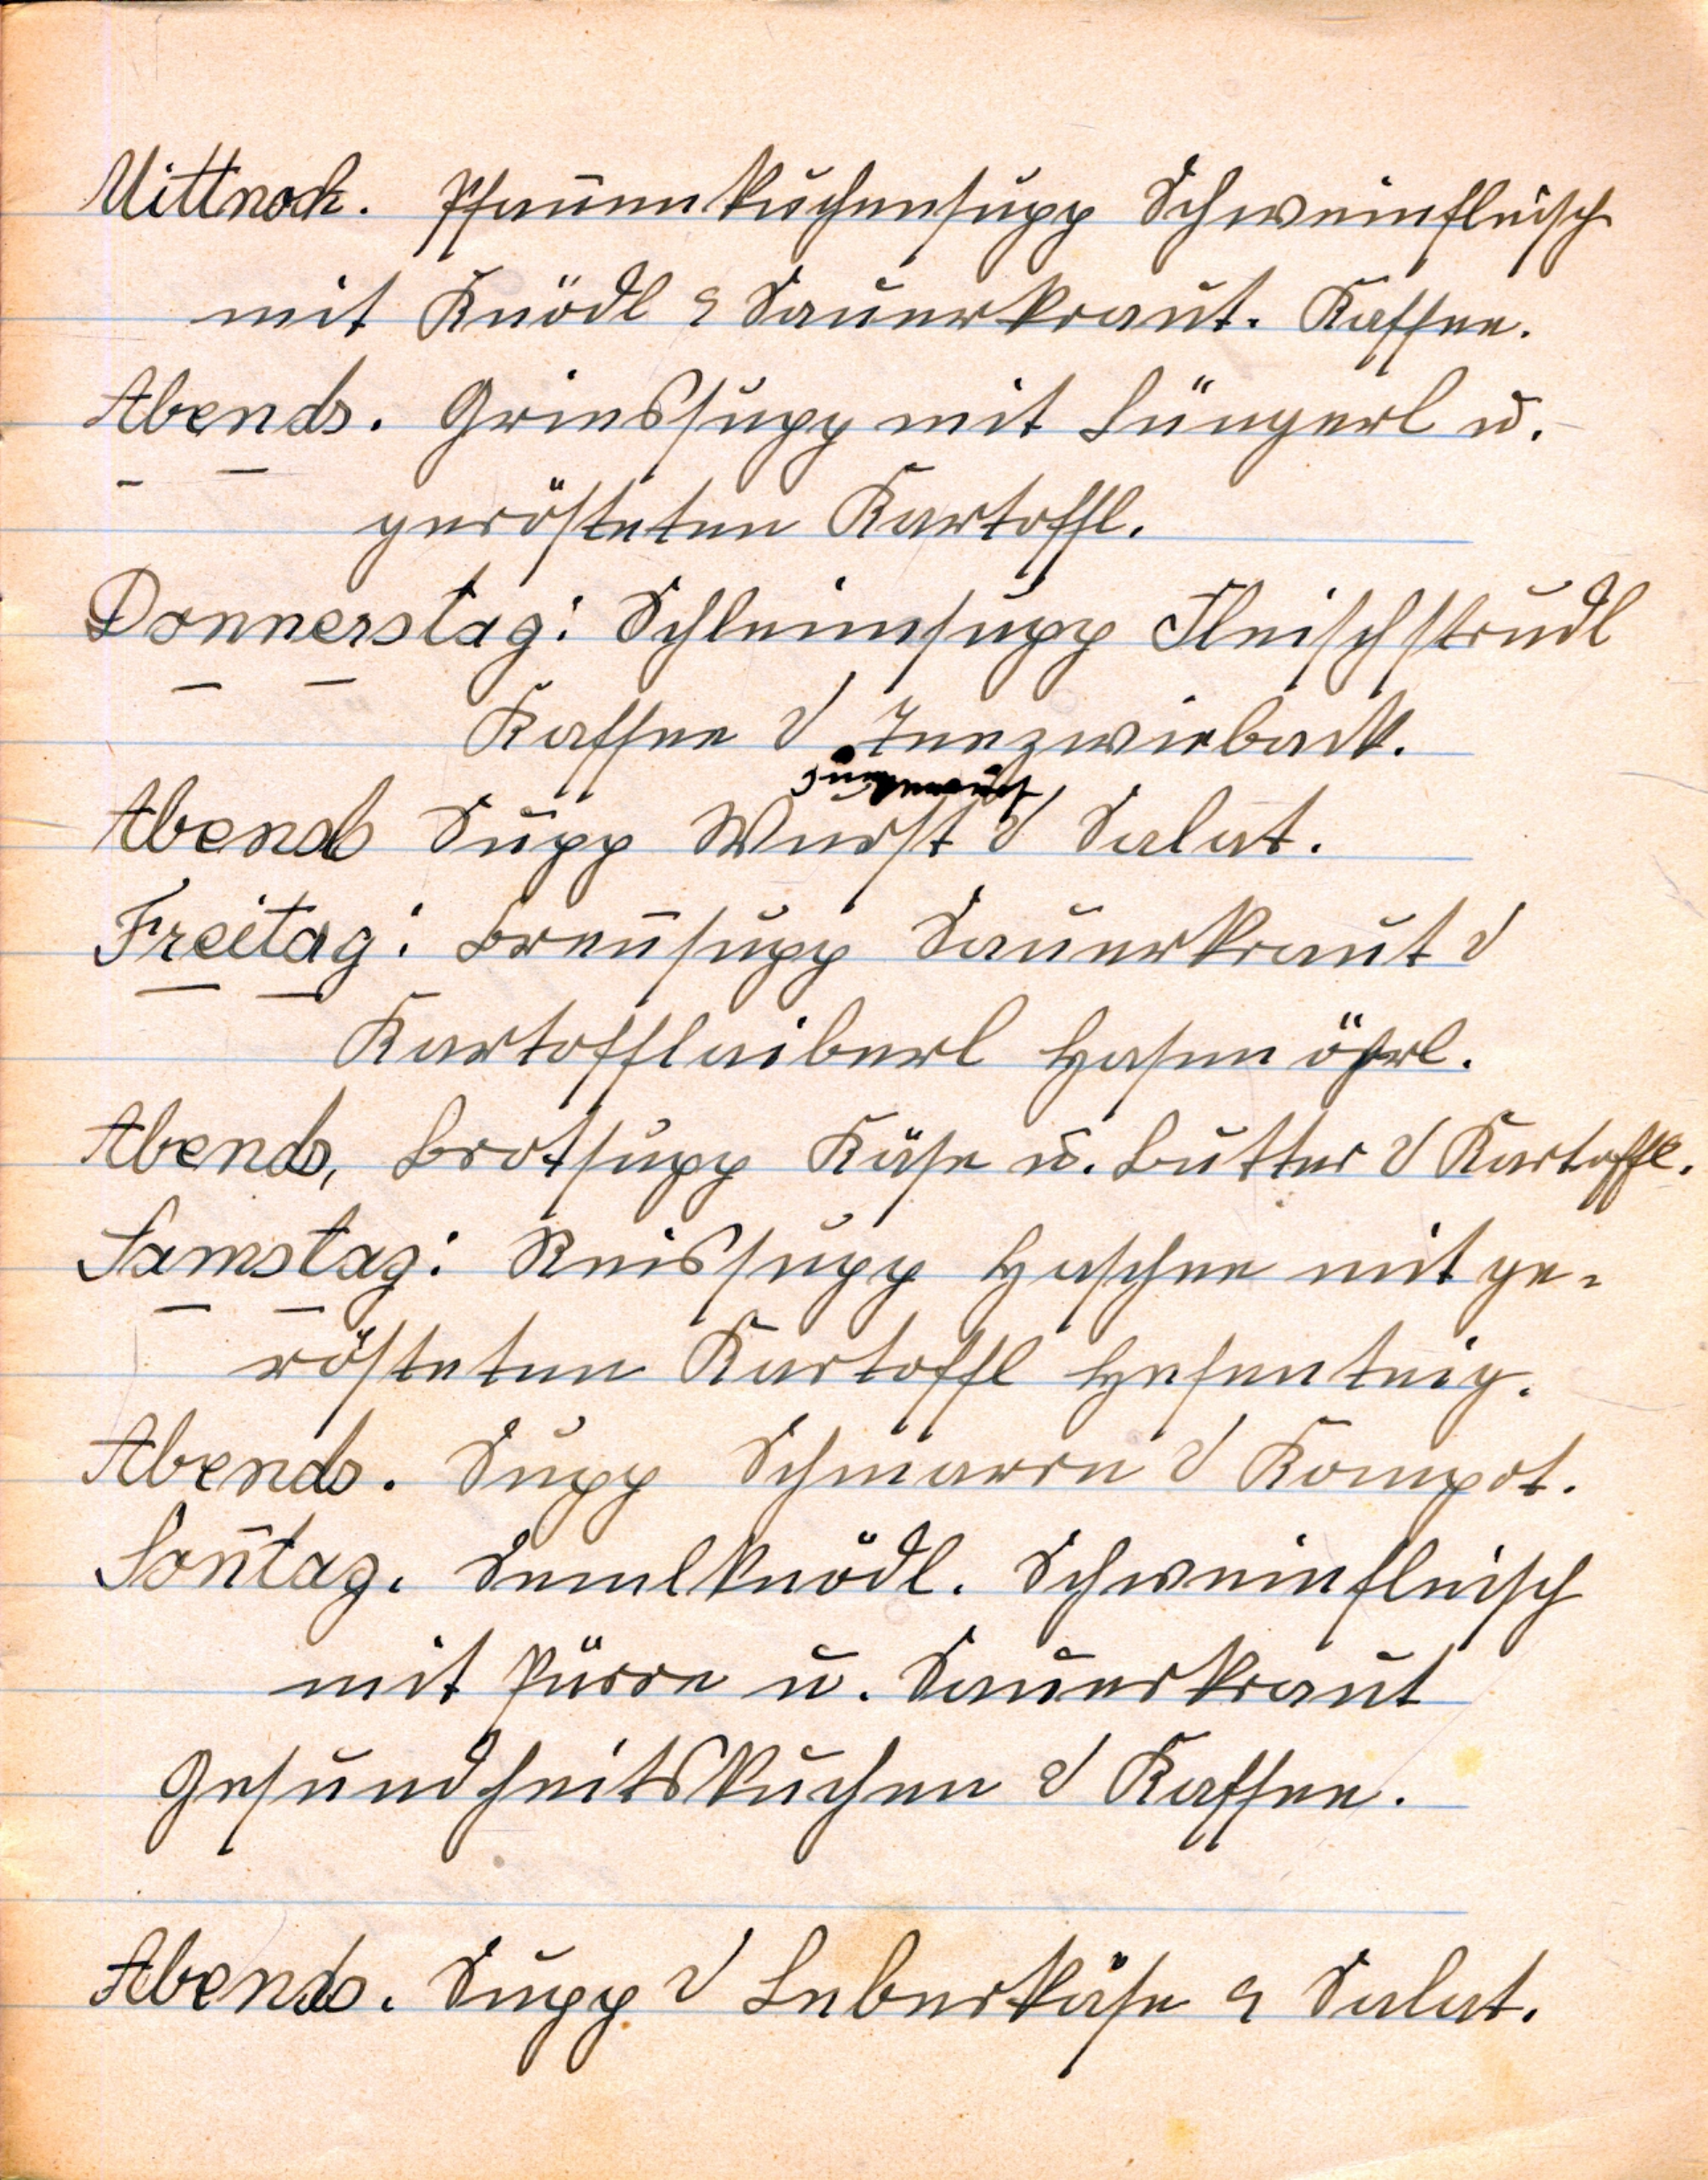 Mittwoch. Pfannenkuchensupp Schweinefleisch
mit Knödl & Sauerkraut. Kaffee.
Abends. Griessupp mit Lüngerl u.
gerösteten Kartoffl.
Donnerstag: Schleimsupp Fleischstrudl
Kaffee & Teezwieback.
Abends Supp Wurst & Salat.
Freitag: Brennsupp Sauerkraut &
Kartofflaiberl Hasenöhrl.
Abends, Brotsupp Käse u. Butter & Kartoffl.
Samstag: Reissupp Haschee mit ge-
rösteten Kartoffl Hefenteig.
Abends. Supp Schmarrn & Kompot.
Son̄tag. Semelknödl. Schweinfleisch
mit Pürre u. Sauerkraut
Gesundheitskuchen & Kaffee.
Abends. Supp & Leberkäse & Salat.